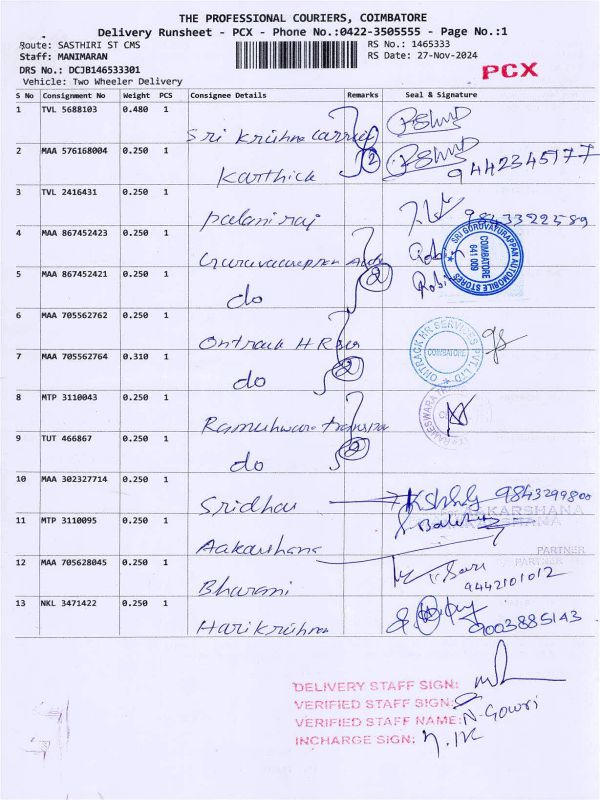 THE PROFESSIONAL COURIERS, COIMBATORE
Delivery Runsheet - PCX - Phone No.:0422-3505555 - Page No.:1
Route: SASTHIRI ST CMS
RS No.: 1465333
Staff: MANIMARAN
RS Date: 27-Nov-2024
DRS No.: DCJB146533301
PCX
Vehicle: Two Wheeler Delivery
S No Consignment No Weight PCS Consignee Details Remarks Seal & Signature
1 TVL 5688103 0.480 1
Sri Krishna Carrier
2 MAA 576168004 0.250 1
Karthick 2 9442345177
3 TVL 2416431 0.250 1
Palaniraj
4 MAA 867452423 0.250 1
SRI GURUVAYURAPPAN AUTOMOBILE STORES
COIMBATORE
641 009
5 MAA 867452421 0.250 1
do 2
6 MAA 705562762 0.250 1
Ontrack H R
ONTRACK HR SERVICES PVT. LTD
COIMBATORE
7 MAA 705562764 0.310 1
do 2
8 MTP 3110043 0.250 1
Rameshwara
9 TUT 466867 0.250 1
do 2
10 MAA 302327714 0.250 1
Sridhar 9843299800
AAKARSHANA
11 MTP 3110095 0.250 1
Aakarshana
PARTNER
12 MAA 705628045 0.250 1
Bharani 9442101012
13 NKL 3471422 0.250 1
Harikrishnan 9003885143
DELIVERY STAFF SIGN:
VERIFIED STAFF SIGN:
VERIFIED STAFF NAME: N. Gowri
INCHARGE SIGN: